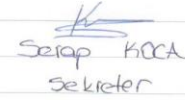 Serap KOCA
Sekreter